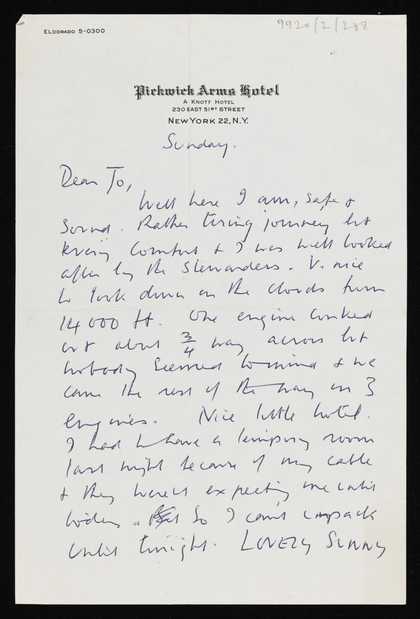 9920/2/288
ELDORADO 5-0300
Pickwick Arms Hotel
A KNOTT HOTEL
230 EAST 51ST STREET
NEW YORK 22, N.Y.
Sunday.
Dear Jo,
Well here I am, safe &
sound. Rather tiring journey but
every comfort & I was well looked
after by the Stewardess. V. nice
to look down on the clouds from
14 000 ft. One engine conked
out about 3/4 way across but
nobody seemed to mind & we
came the rest of the way on 3
engines. Nice little hotel.
I had to have a temporary room
last night because of my cable
& they weren't expecting me until
today. So I can't unpack
until tonight. LOVELY SUNNY